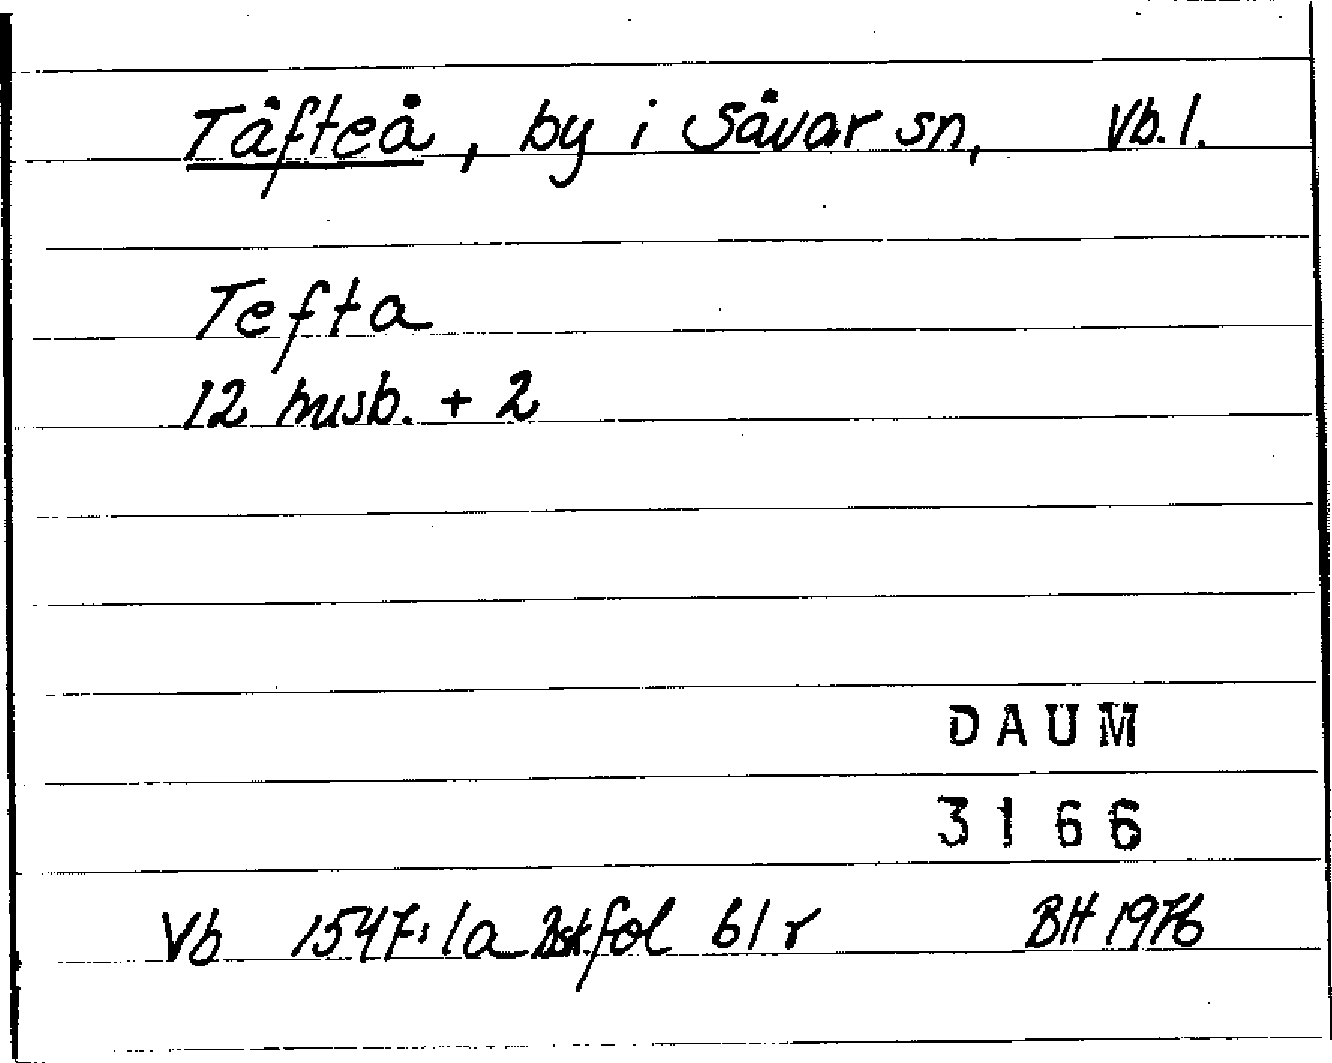 Täfteå, by i Sävar sn, Vb. l.
Tefta
12 husb. + 2
DAUM
3166
Vb 1547:1a fol 61 r BH 1976